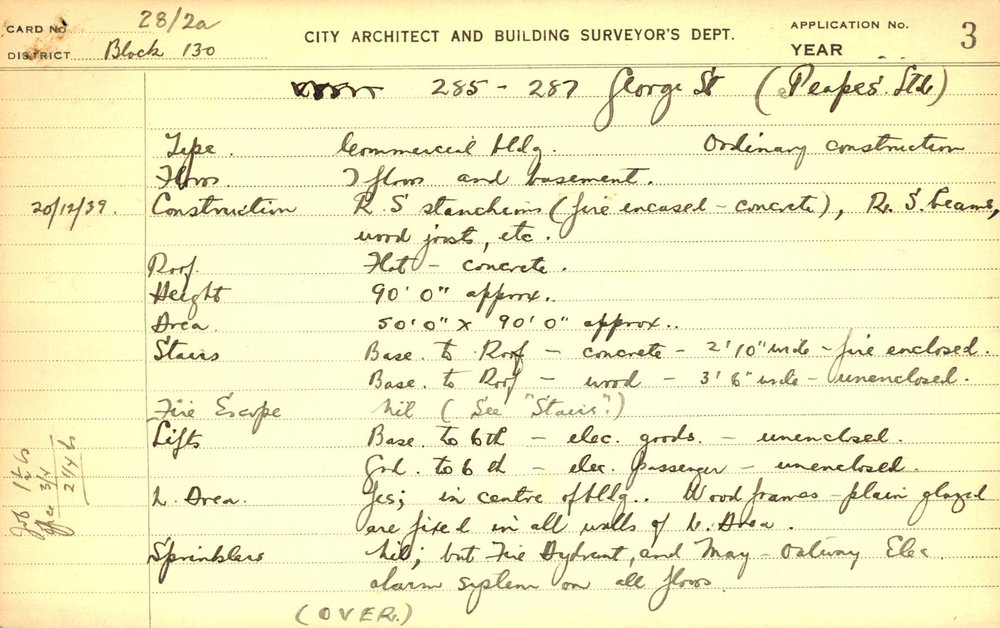 CARD NO 28/2a
DISTRICT Block 130
CITY ARCHITECT AND BUILDING SURVEYOR'S DEPT.
APPLICATION No.
YEAR
3
285 - 287 George St (Peapes' Ltd)
Type. Commercial bldg. Ordinary construction
Floors. 7 floors and basement.
20/12/39. Construction R.S stanchions (fire encased - concrete), R.S. beams,
wood joists, etc.
Roof. Flat - concrete.
Height 90' 0" approx..
Area. 50'0" x 90'0" approx..
Stairs Base. to Roof - concrete - 2'10" wide - fire enclosed.
Base. to Roof - wood - 3'6" wide - unenclosed.
Fire Escape Nil (See "Stairs".)
Lifts Base. to 6th - elec. goods. - unenclosed.
Grd. to 6th - elec. passenger - unenclosed.
L. Area. Yes; in centre of bldg.. Wood frames - plain glazed
are fixed in all walls of L. Area.
Sprinklers Nil; but Fire Hydrant, and May-Oatway Elec.
alarm system on all floors
(OVER.)
Job 1 1/2 hs
Office 3/4
2 1/4 hs